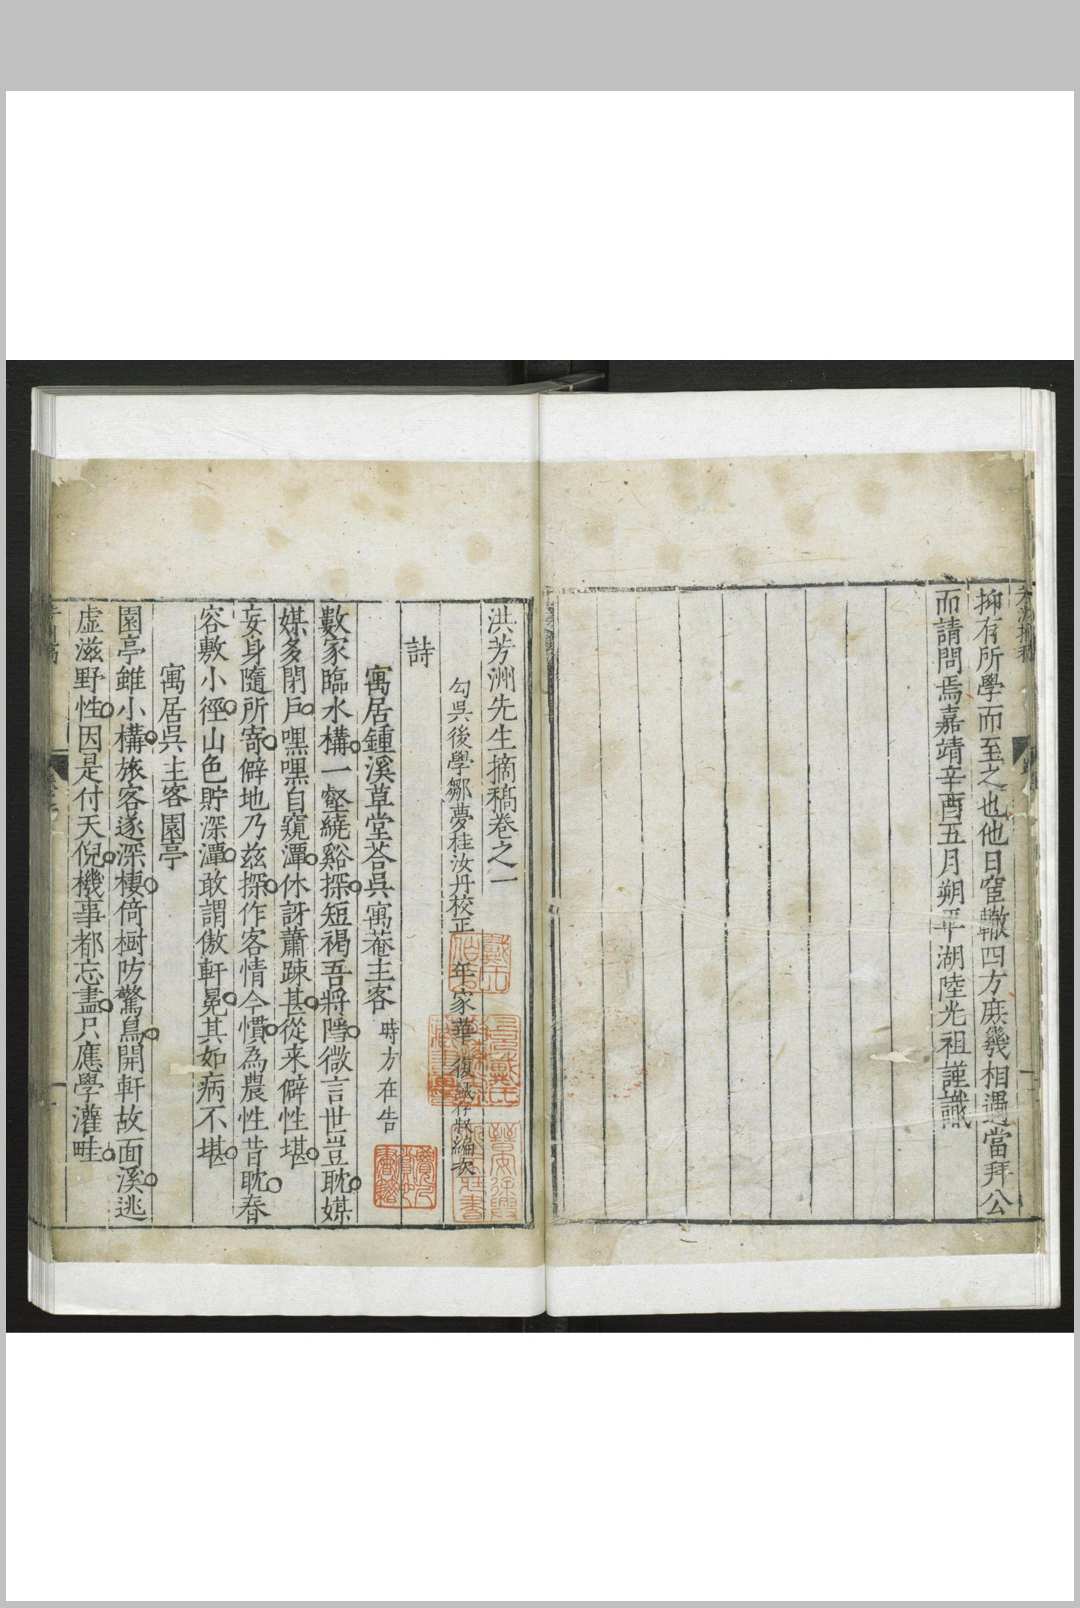 抑有所學而至之也他日窒轍四方庻幾相遇當拜公
而請問焉嘉靖辛酉五月朔平湖陸光祖謹識
洪芳洲先生摘稿卷之一
勾吳後學鄒夢桂汝丹校正 年家華復
編次
詩
寓居鍾溪草堂荅吳寓菴主客 時方在告
數家臨水構一壑繞谿探短褐吾將隱微言世豈耽媒
媒多閉戶嘿嘿自窺潭休訝蕭踈甚從来僻性堪
妄身隨所寄僻地乃兹探作客情今慣為農性昔耽春
容敷小徑山色貯深潭敢謂傲軒冕其如病不堪
寓居吳主客園亭
園亭雖小構旅客遂深棲倚樹防驚鳥開軒故面溪逃
虛滋野性因是付天倪機事都忘盡只應學灌畦